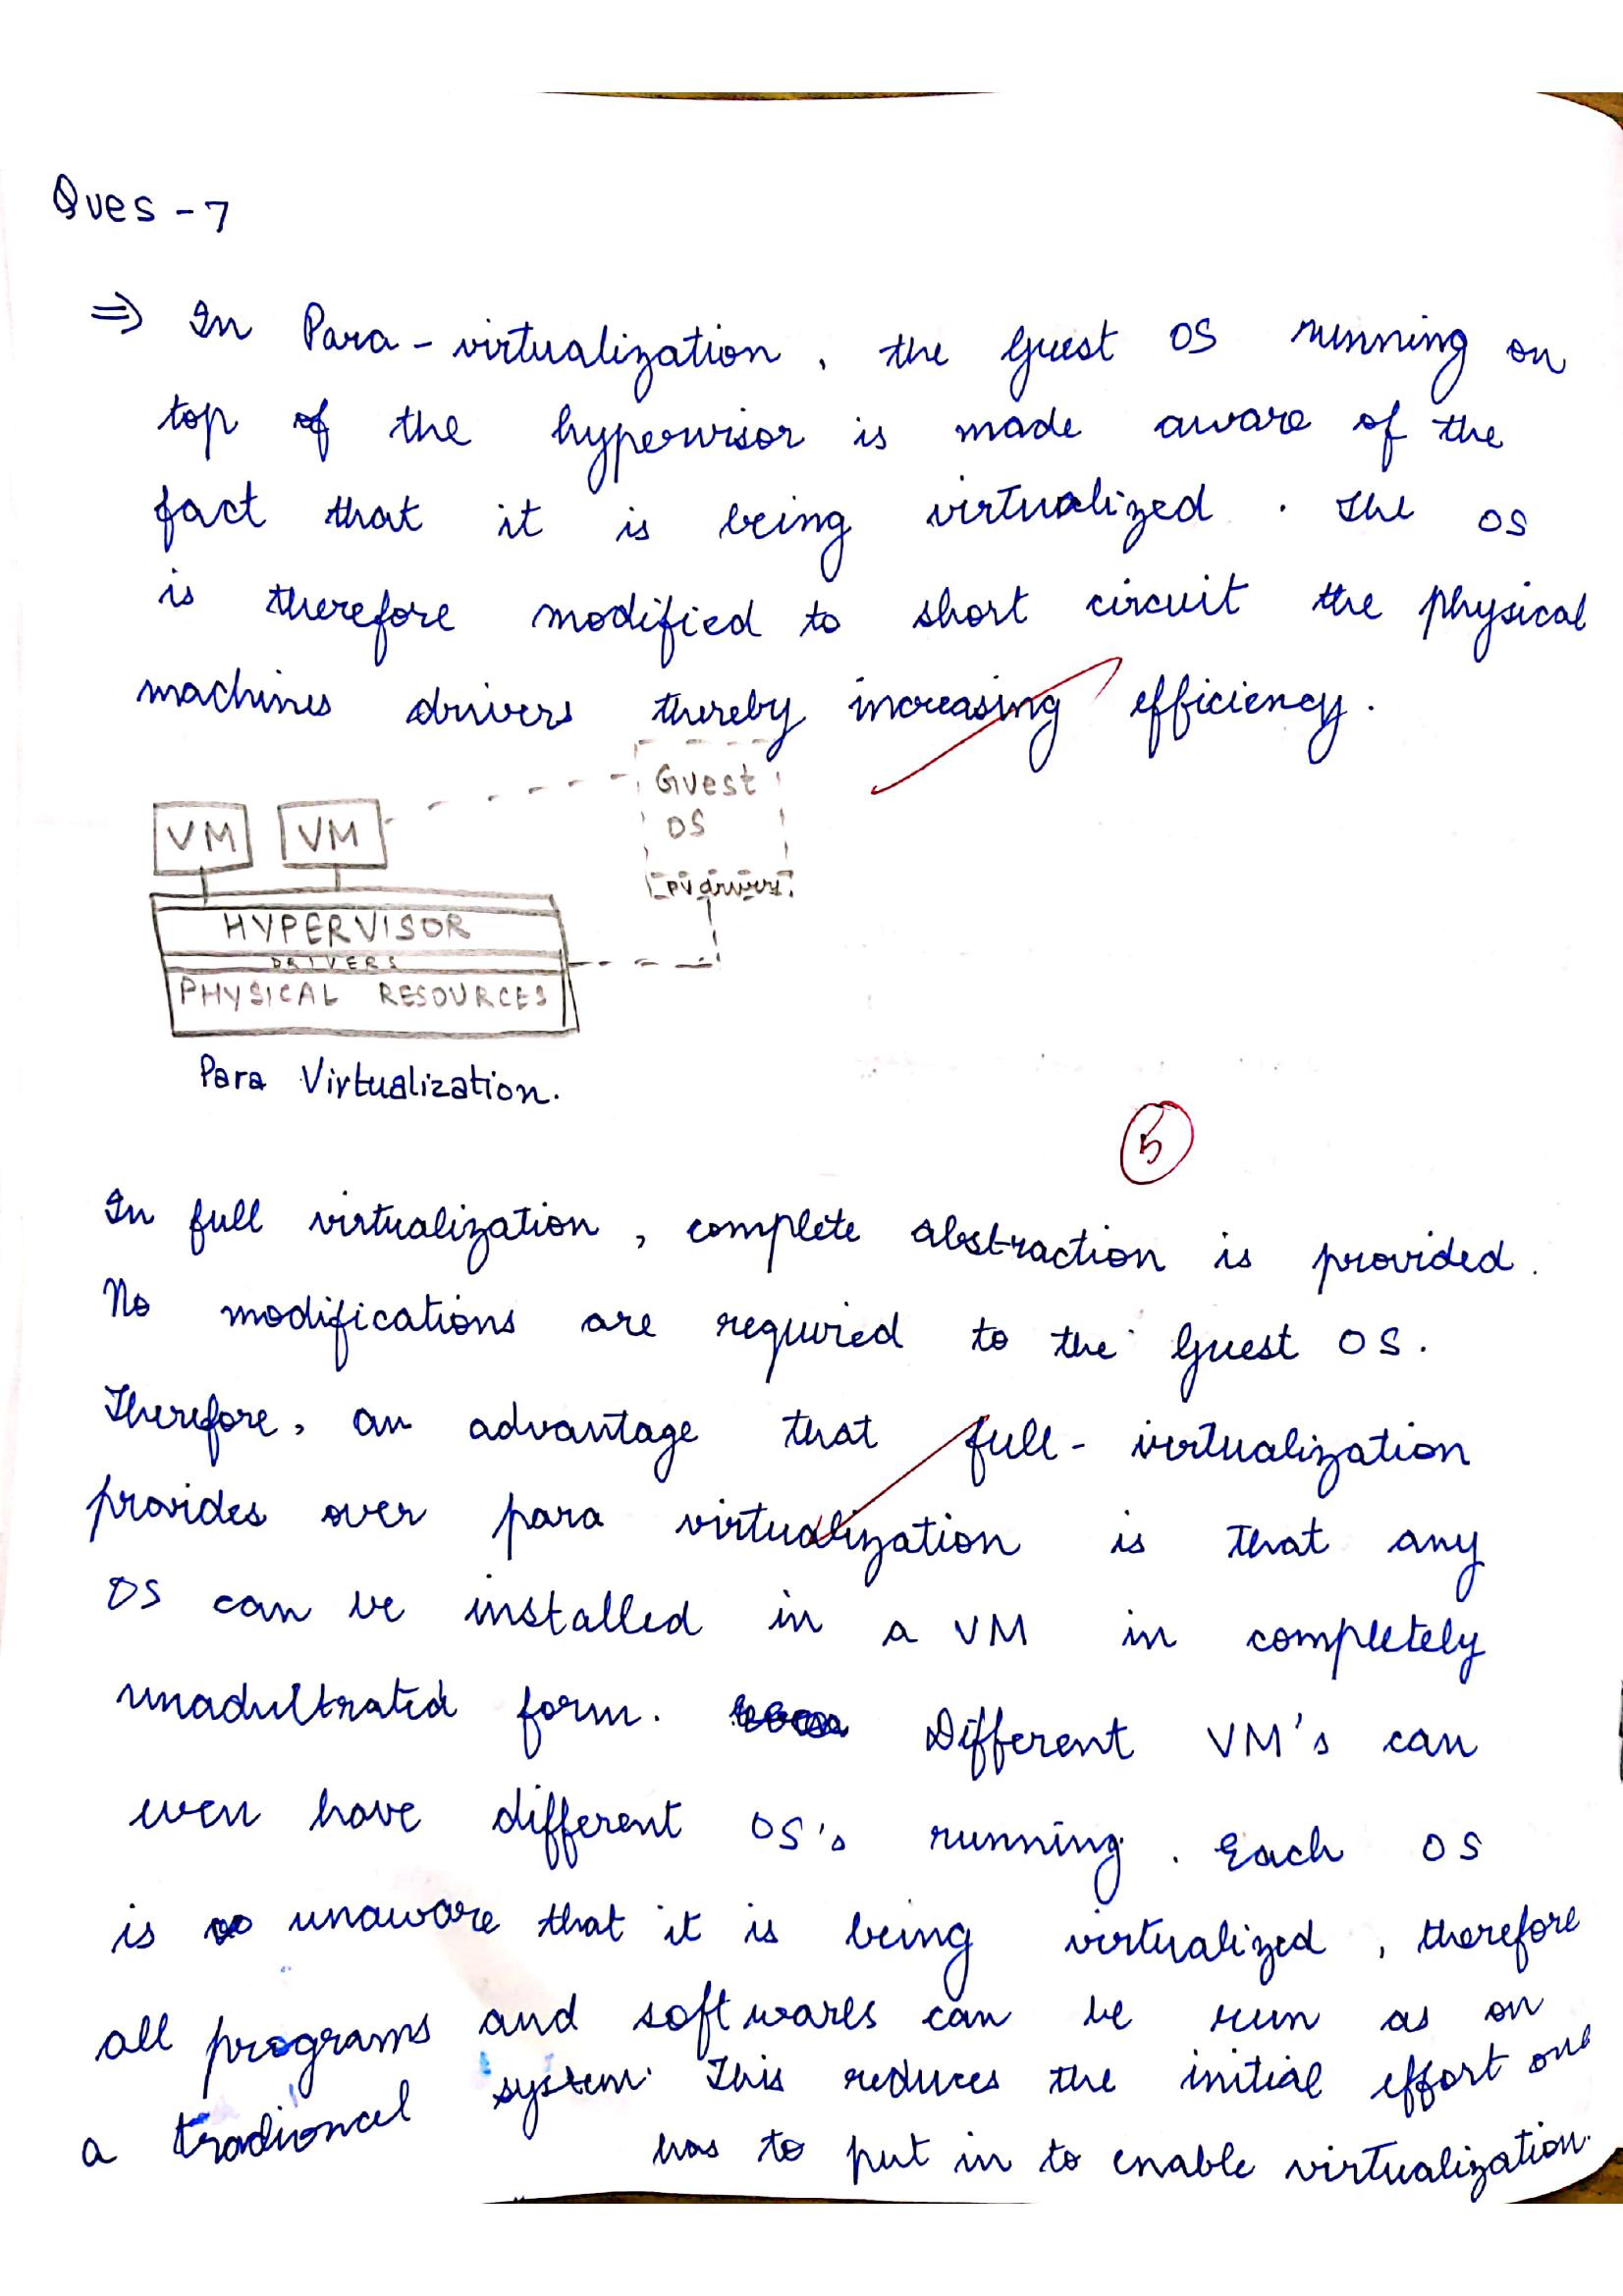 Ques - 7
⇒ In Para - virtualization, the guest OS running on
top of the hypervisor is made aware of the
fact that it is being virtualized. The OS
is therefore modified to short circuit the physical
machines drivers thereby increasing efficiency.
Guest
OS
PV drivers
VM VM
HYPERVISOR
DRIVERS
PHYSICAL RESOURCES
Para Virtualization.
5
In full virtualization, complete abstraction is provided.
No modifications are required to the guest OS.
Therefore, an advantage that full - virtualization
provides over para virtualization is that any
OS can be installed in a VM in completely
unadultrated form. Different VM's can
even have different OS's running. Each OS
is unaware that it is being virtualized, therefore
all programs and softwares can be run as on
a tradioncal system. This reduces the initial effort one
has to put in to enable virtualization.